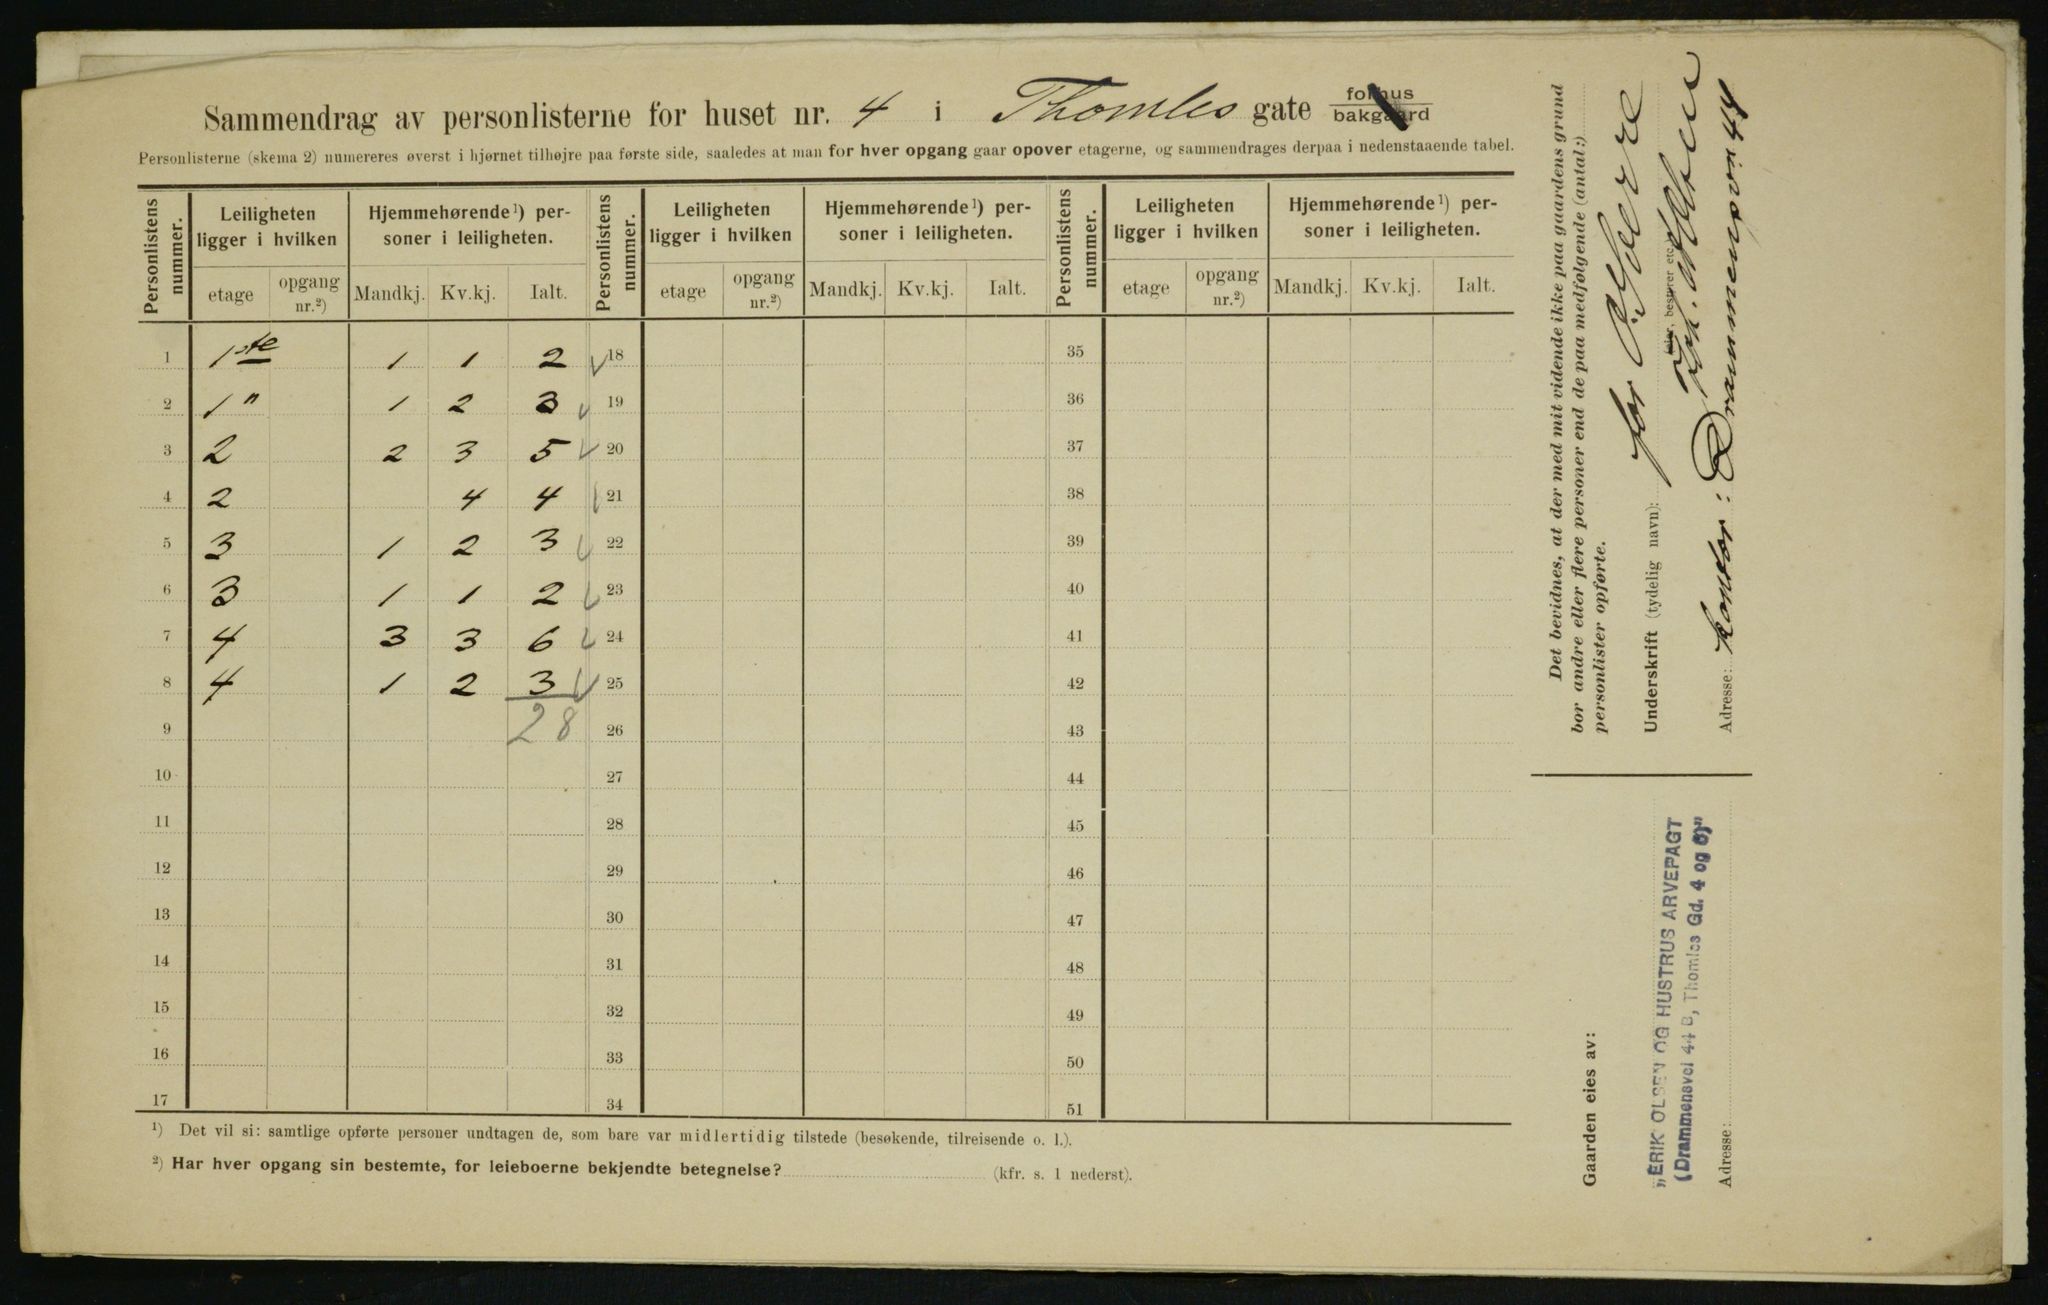 Sammendrag av personlisterne for huset nr. 4 i Thomles gate forhus bakgaard
Personlisterne (skema 2) numereres øverst i hjørnet tilhøjre paa første side, saaledes at man for hver opgang gaar opover etagerne, og sammendrages derpaa i nedenstaaende tabel.
Personlistens nummer. Leiligheten ligger i hvilken Hjemmehørende¹) personer i leiligheten. Personlistens nummer. Leiligheten ligger i hvilken Hjemmehørende¹) personer i leiligheten. Personlistens nummer. Leiligheten ligger i hvilken Hjemmehørende¹) personer i leiligheten.
etage opgang nr.²) Mandkj. Kv.kj. Ialt. etage opgang nr.²) Mandkj. Kv.kj. Ialt. etage opgang nr.²) Mandkj. Kv.kj. Ialt.
1 1ste 1 1 2 18 35
2 1" 1 2 3 19 36
3 2 2 3 5 20 37
4 2 4 4 21 38
5 3 1 2 3 22 39
6 3 1 1 2 23 40
7 4 3 3 6 24 41
8 4 1 2 3 25 42
9 28 26 43
10 27 44
11 28 45
12 29 46
13 30 47
14 31 48
15 32 49
16 33 50
17 34 51
¹) Det vil si: samtlige opførte personer undtagen de, som bare var midlertidig tilstede (besøkende, tilreisende o. l.).
²) Har hver opgang sin bestemte, for leieboerne bekjendte betegnelse? (kfr. s. 1 nederst).
Det bevidnes, at der med mit vidende ikke paa gaardens grund
bor andre eller flere personer end de paa medfølgende (antal:)
personlister opførte.
for Eierre
Underskrift (tydelig navn):
Adresse: Kontor: Drammensvn 44
Gaarden eies av:
„ERIK OLSEN OG HUSTRUS ARVEPAGT
(Drammensvei 44 B, Thomles Gd. 4 og 6)"
Adresse: